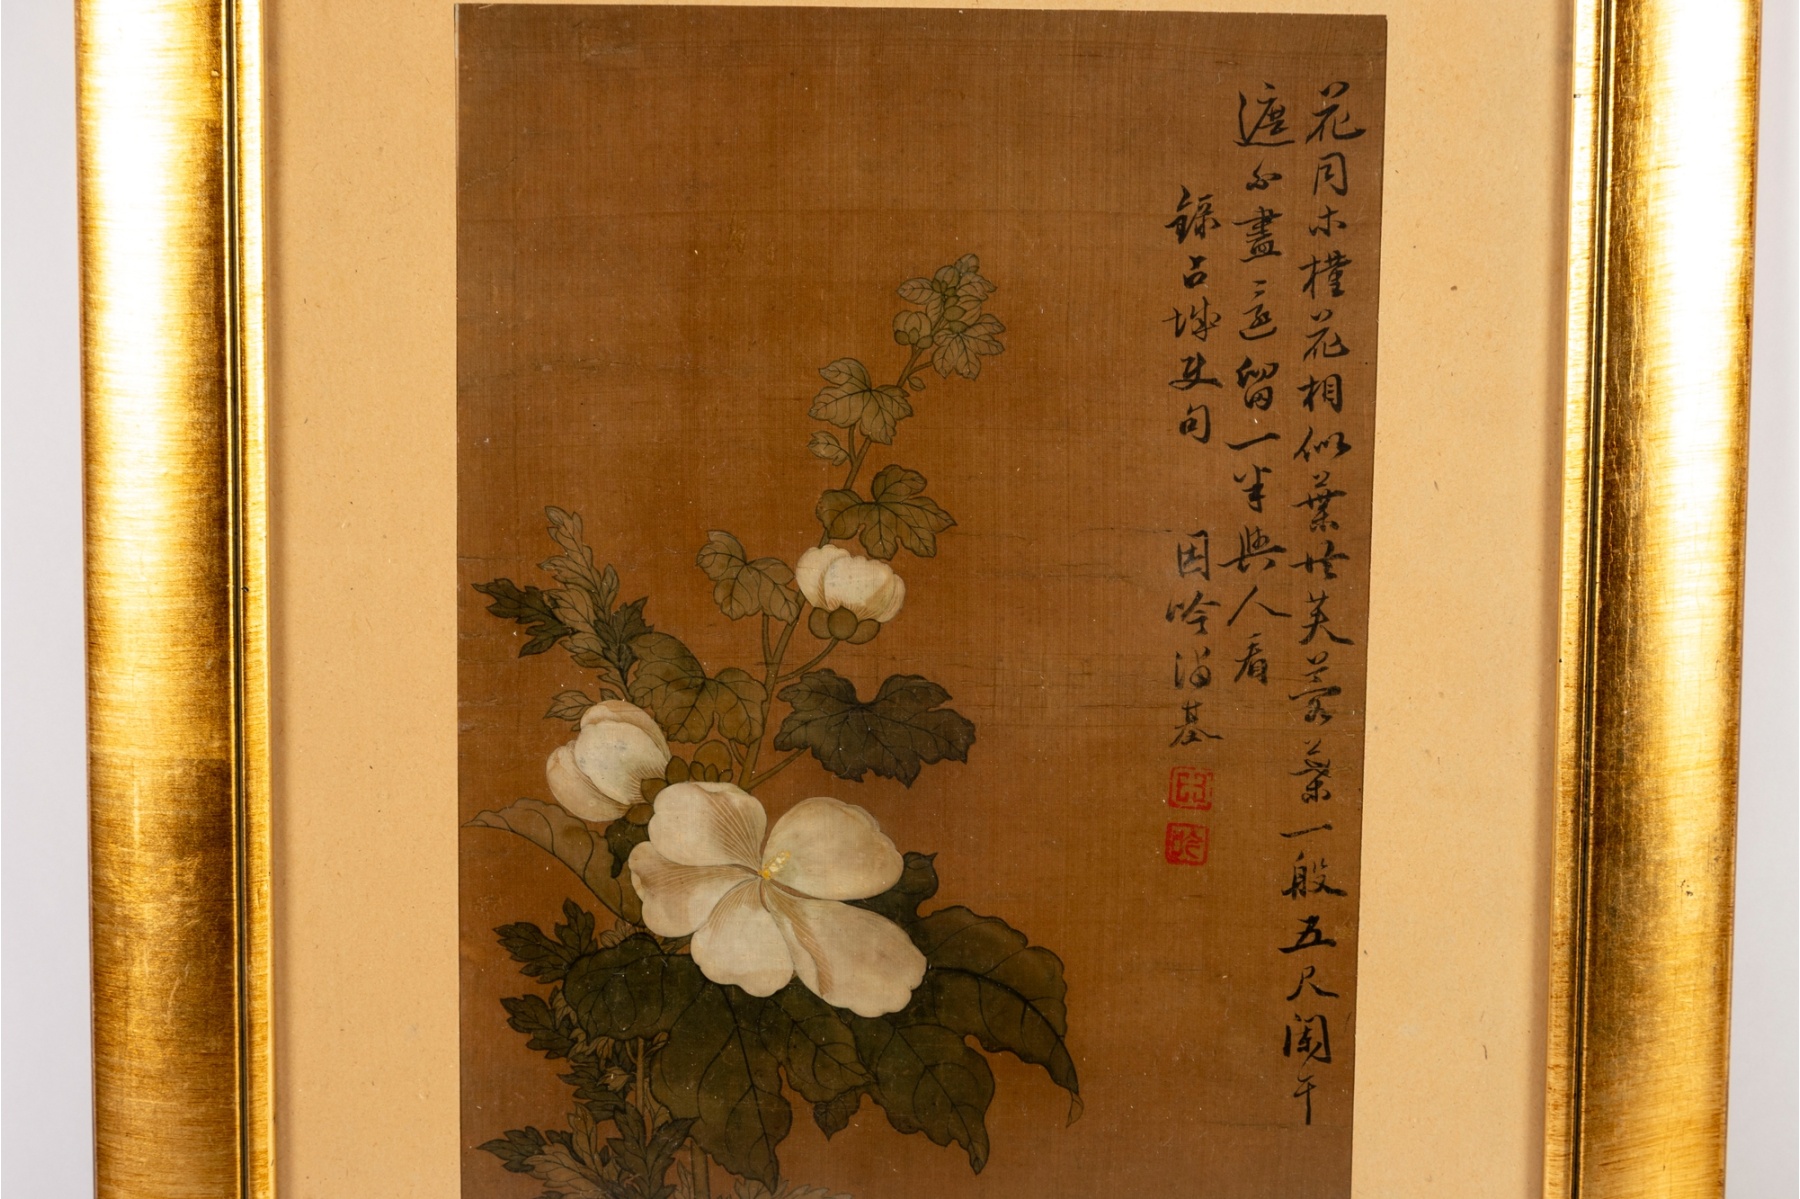 花同木槿花相似葉共芙蓉葉一般五尺闌干
遮不盡還留一半與人看
錄占城 句 因吟 基